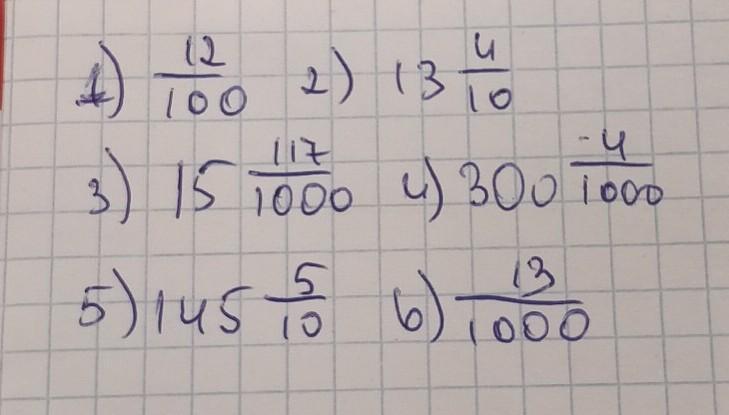 1) 12/100 2) 13 4/10
3) 15 117/1000 4) 300 4/1000
5) 145 5/10 6) 13/1000